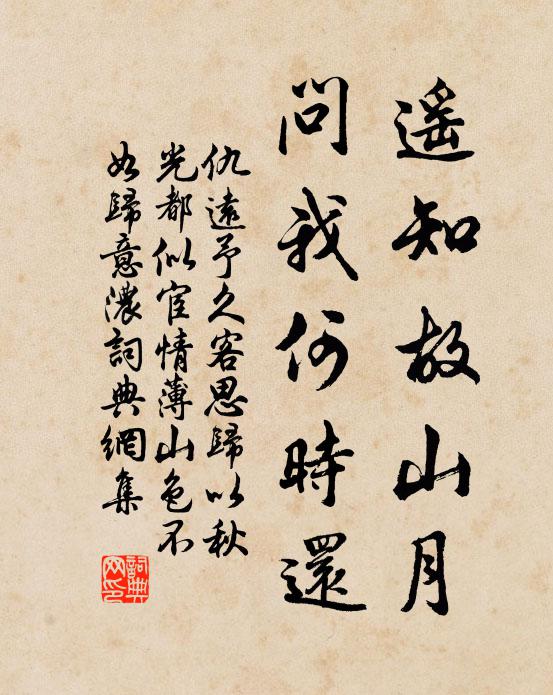 遥知故山月
問我何時還
仇遠予久客思歸以秋
光都似宦情薄山色不
如歸意濃詞典網集
詞典网印